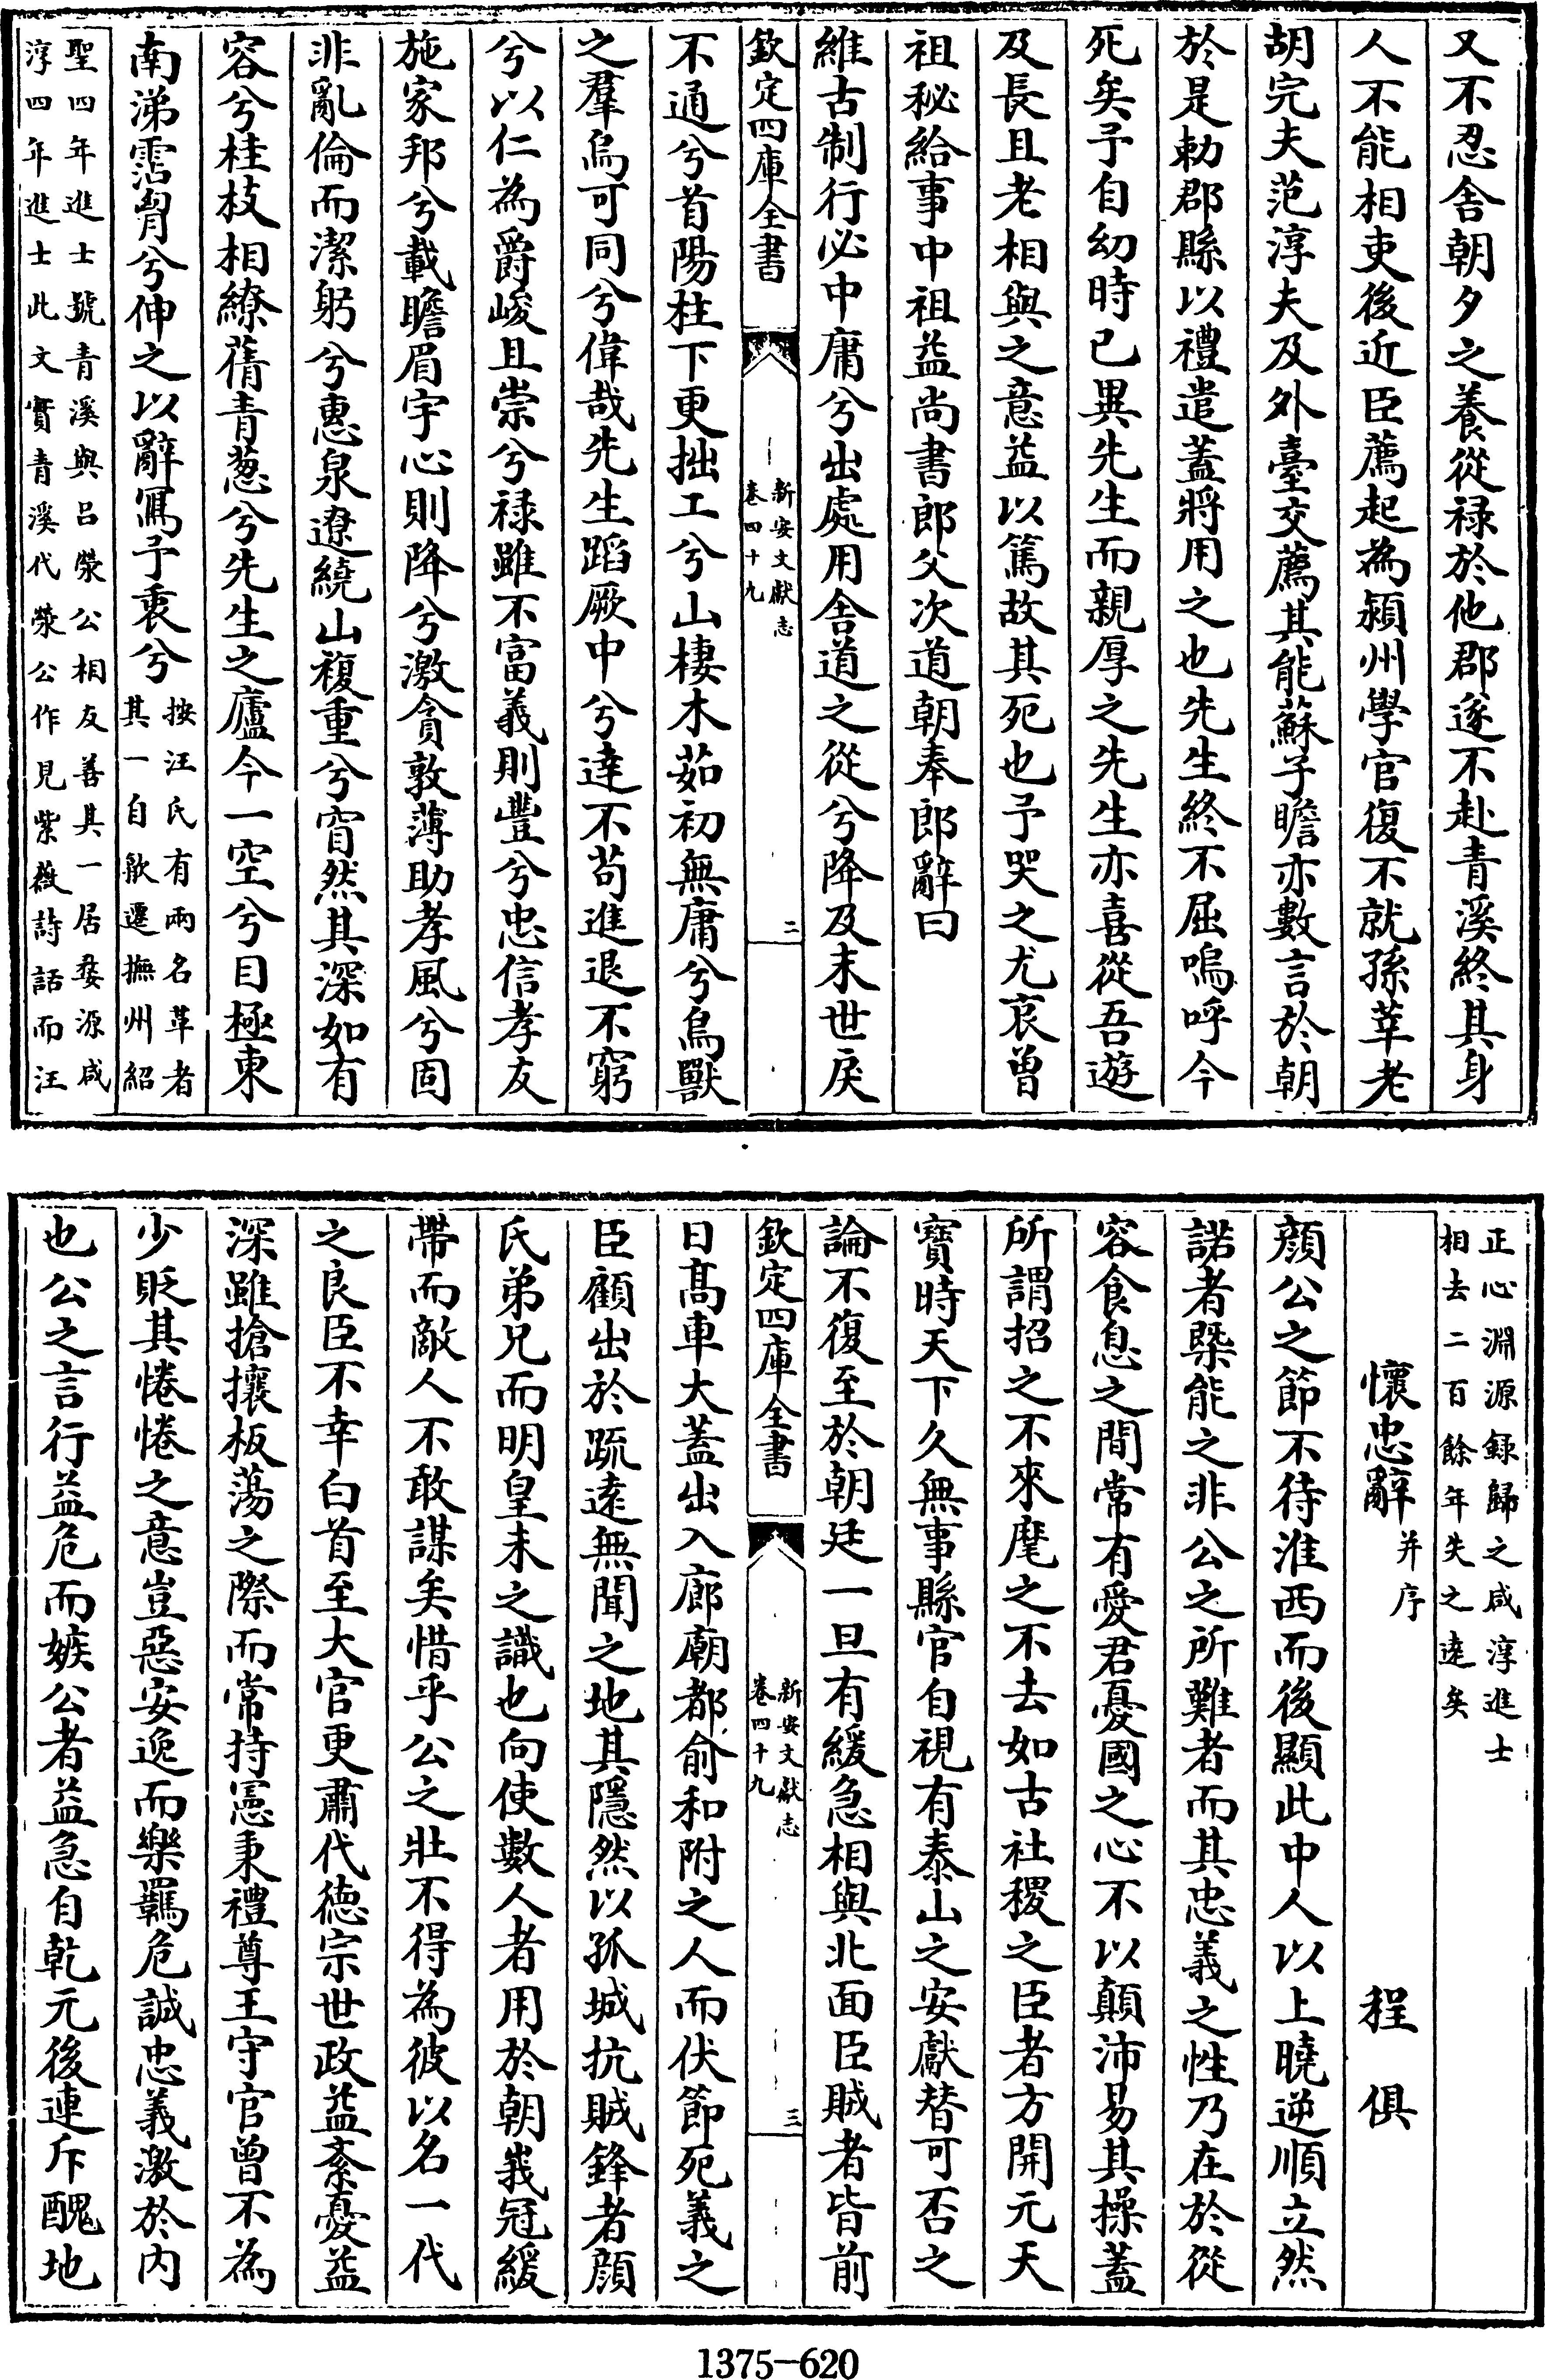 又不忍舍朝夕之養從禄於他郡遂不赴青溪終其身
人不能相吏後近臣薦起為潁州學官復不就孫莘老
胡完夫范淳夫及外臺交薦其能蘇子瞻亦數言於朝
於是勅郡縣以禮遣蓋將用之也先生終不屈嗚呼今
死矣予自幼時已異先生而親厚之先生亦喜從吾遊
及長且老相與之意益以篤故其死也予哭之尤哀曾
祖秘給事中祖益尚書郎父次道朝奉郎辭曰
維古制行必中庸兮出處用舍道之從兮降及末世戾
欽定四庫全書
新安文獻志
卷四十九
二
不通兮首陽柱下更拙工兮山棲木茹初無庸兮鳥獸
之羣烏可同兮偉哉先生蹈厥中兮達不苟進退不窮
兮以仁為爵峻且崇兮禄雖不富義則豐兮忠信孝友
施家邦兮載瞻眉宇心則降兮激貪敦薄助孝風兮固
非亂倫而潔躬兮惠泉遼繞山複重兮窅然其深如有
容兮桂枝相繚蒨青葱兮先生之廬今一空兮目極東
南涕霑胷兮伸之以辭寫予衷兮
按汪氏有兩名革者
其一自歙遷撫州紹
聖四年進士號青溪與吕滎公相友善其一居婺源咸
淳四年進士此文實青溪代滎公作見紫薇詩話而汪
正心淵源録歸之咸淳進士
相去二百餘年失之遠矣
懷忠辭并序 程俱
顔公之節不待淮西而後顯此中人以上曉逆順立然
諾者槩能之非公之所難者而其忠義之性乃在於從
容食息之間常有愛君憂國之心不以顛沛易其操蓋
所謂招之不來麾之不去如古社稷之臣者方開元天
寶時天下久無事縣官自視有泰山之安獻替可否之
論不復至於朝廷一旦有緩急相與北面臣賊者皆前
欽定四庫全書
新安文獻志
卷四十九
三
日髙車大蓋出入廊廟都俞和附之人而伏節死義之
臣顧出於疏遠無聞之地其隱然以孤城抗賊鋒者顔
氏弟兄而明皇未之識也向使數人者用於朝峩冠緩
帶而敵人不敢謀矣惜乎公之壯不得為彼以名一代
之良臣不幸白首至大官更肅代德宗世政益紊憂益
深雖搶攘板蕩之際而常持憲秉禮尊王守官曾不為
少貶其惓惓之意豈惡安逸而樂羈危誠忠義激於内
也公之言行益危而嫉公者益急自乾元後連斥醜地
1375-620